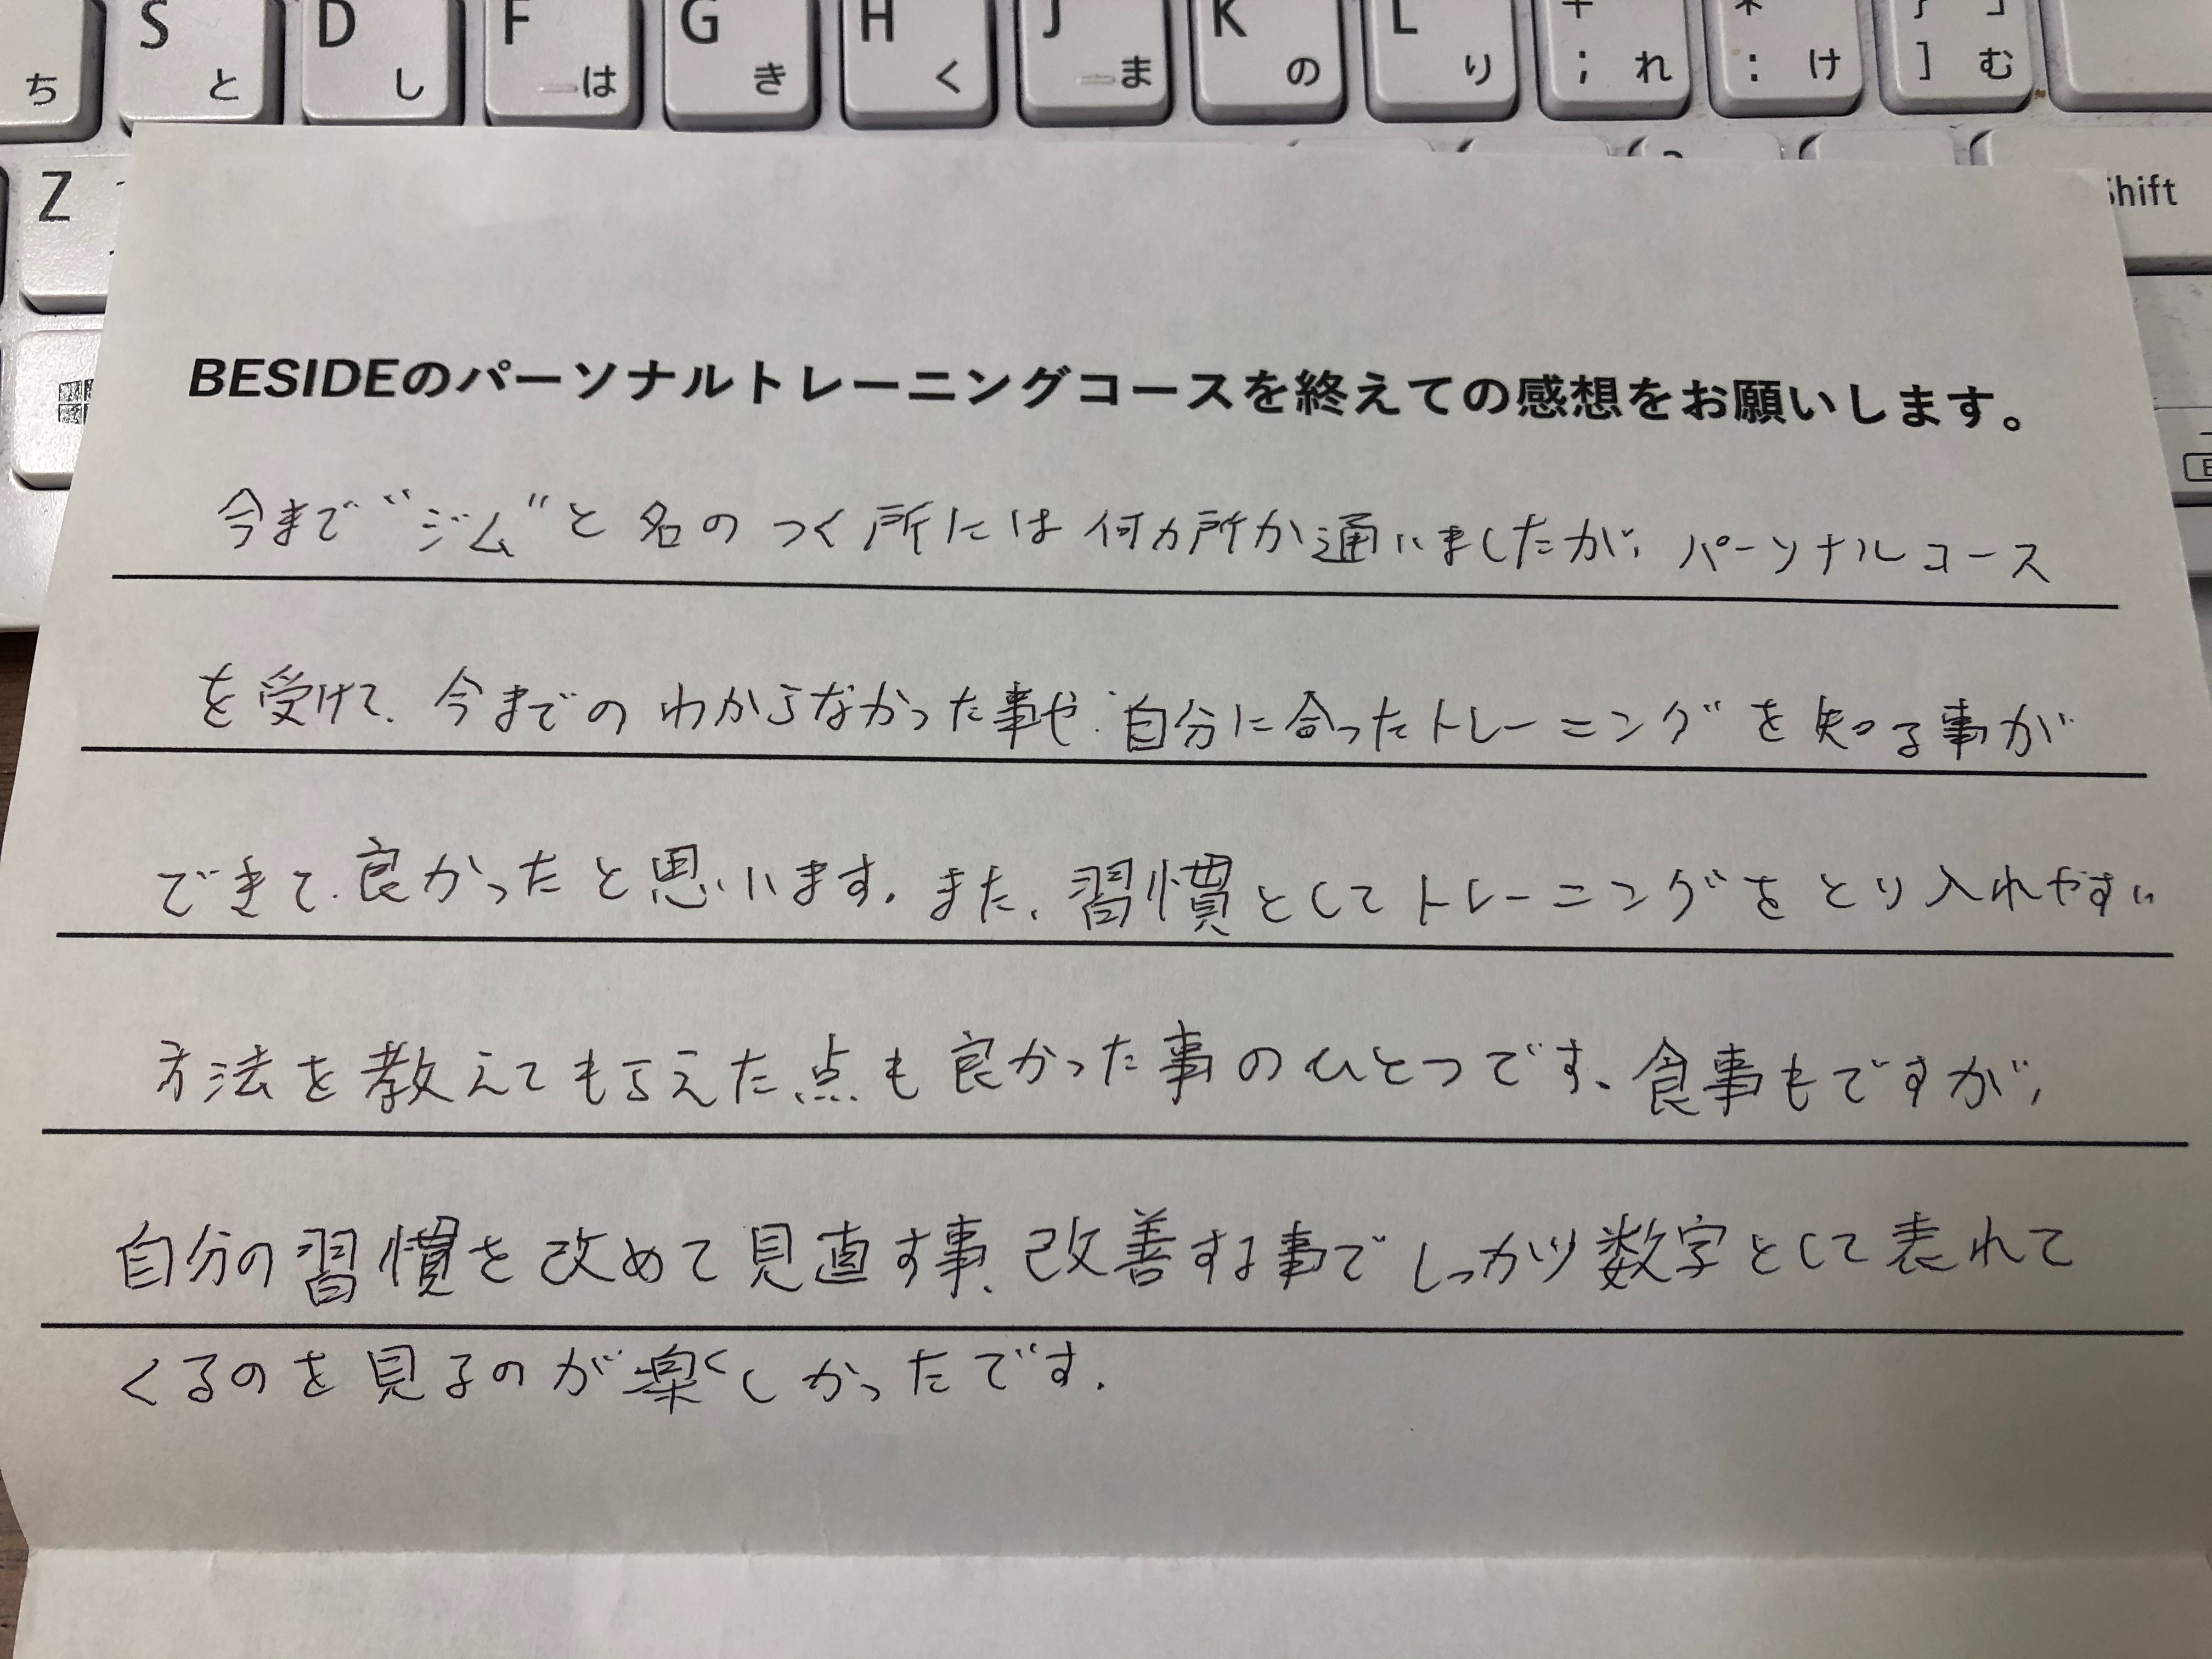 S D F G H J K L + * } 」
ち と し は き く ま の り ; れ : け ] む
Z Shift
BESIDEのパーソナルトレーニングコースを終えての感想をお願いします。
今まで“ジム”と名のつく所には何カ所か通いましたが、パーソナルコース
を受けて、今までのわからなかった事や、自分に合ったトレーニングを知る事が
できて、良かったと思います。また、習慣としてトレーニングをとり入れやすい
方法を教えてもらえた点も良かった事のひとつです。食事もですが、
自分の習慣を改めて見直す事、改善する事でしっかり数字として表れて
くるのを見るのが楽しかったです。